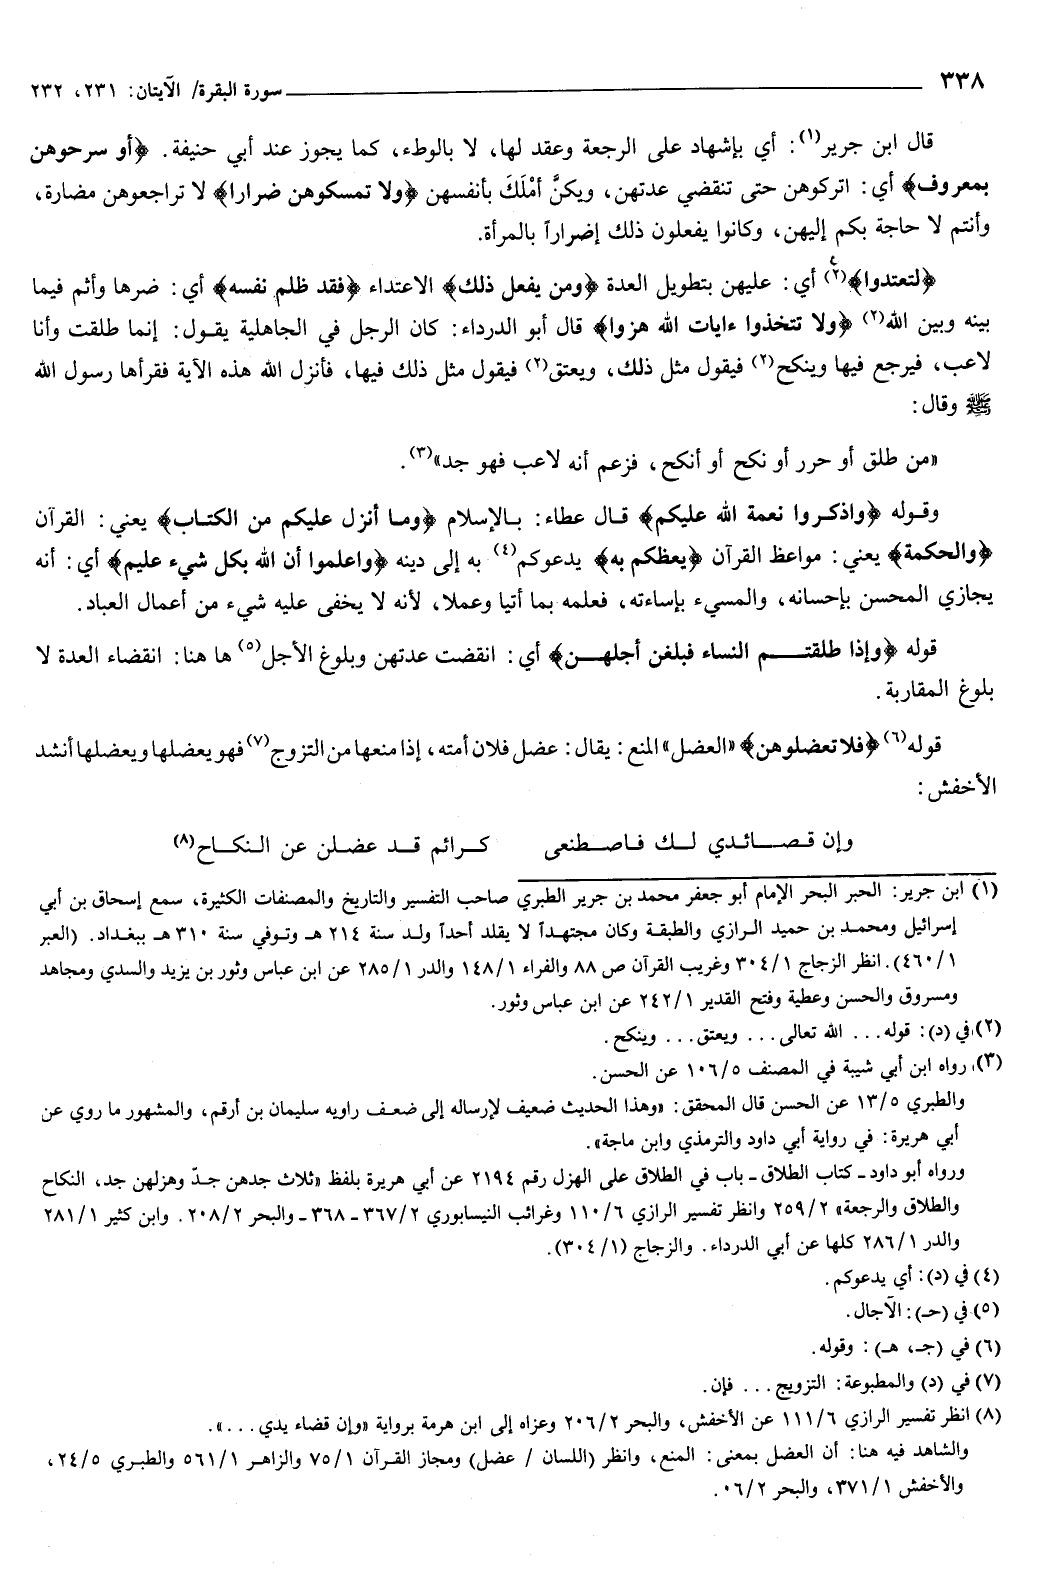 ٣٣٨ سورة البقرة/ الآيتان: ٢٣١، ٢٣٢
قال ابن جرير(١): أي بإشهاد على الرجعة وعقد لها، لا بالوطء، كما يجوز عند أبي حنيفة. ﴿أو سرحوهن
بمعروف﴾ أي: اتركوهن حتى تنقضي عدتهن، ويكنَّ أمْلَكَ بأنفسهن ﴿ولا تمسكوهن ضرارا﴾ لا تراجعوهن مضارة،
وأنتم لا حاجة بكم إليهن، وكانوا يفعلون ذلك إضراراً بالمرأة.
﴿لتعتدوا﴾(٢) أي: عليهن بتطويل العدة ﴿ومن يفعل ذلك﴾ الاعتداء ﴿فقد ظلم نفسه﴾ أي: ضرها وأثم فيما
بينه وبين الله(٢) ﴿ولا تتخذوا ءايات الله هزوا﴾ قال أبو الدرداء: كان الرجل في الجاهلية يقول: إنما طلقت وأنا
لاعب، فيرجع فيها وينكح(٢) فيقول مثل ذلك، ويعتق(٢) فيقول مثل ذلك فيها، فأنزل الله هذه الآية فقرأها رسول الله
ﷺ وقال:
«من طلق أو حرر أو نكح أو أنكح، فزعم أنه لاعب فهو جد»(٣).
وقوله ﴿واذكروا نعمة الله عليكم﴾ قال عطاء: بالإسلام ﴿وما أنزل عليكم من الكتاب﴾ يعني: القرآن
﴿والحكمة﴾ يعني: مواعظ القرآن ﴿يعظكم به﴾ يدعوكم(٤) به إلى دينه ﴿واعلموا أن الله بكل شيء عليم﴾ أي: أنه
يجازي المحسن بإحسانه، والمسيء بإساءته، فعلمه بما أتيا وعملا، لأنه لا يخفى عليه شيء من أعمال العباد.
قوله ﴿وإذا طلقتم النساء فبلغن أجلهن﴾ أي: انقضت عدتهن وبلوغ الأجل(٥) ها هنا: انقضاء العدة لا
بلوغ المقاربة.
قوله(٦) ﴿فلا تعضلوهن﴾ «العضل» المنع: يقال: عضل فلان أمته، إذا منعها من التزوج(٧) فهو يعضلها ويعضلها أنشد
الأخفش:
وإن قصائدي لك فاصطنعى كرائم قد عضلن عن النكاح(٨)
(١) ابن جرير: الحبر البحر الإمام أبو جعفر محمد بن جرير الطبري صاحب التفسير والتاريخ والمصنفات الكثيرة، سمع إسحاق بن أبي
إسرائيل ومحمد بن حميد الرازي والطبقة وكان مجتهداً لا يقلد أحداً ولد سنة ٢١٤ هـ وتوفي سنة ٣١٠ هـ ببغداد. (العبر
١/ ٤٦٠). انظر الزجاج ١/ ٣٠٤ وغريب القرآن ص ٨٨ والفراء ١/ ١٤٨ والدر ١/ ٢٨٥ عن ابن عباس وثور بن يزيد والسدي ومجاهد
ومسروق والحسن وعطية وفتح القدير ١/ ٢٤٢ عن ابن عباس وثور.
(٢) في (د): قوله... الله تعالى... ويعتق... وينكح.
(٣) رواه ابن أبي شيبة في المصنف ٥/ ١٠٦ عن الحسن.
والطبري ٥/ ١٣ عن الحسن قال المحقق: «وهذا الحديث ضعيف لإرساله إلى ضعف راويه سليمان بن أرقم، والمشهور ما روي عن
أبي هريرة: في رواية أبي داود والترمذي وابن ماجة».
ورواه أبو داود ـ كتاب الطلاق ـ باب في الطلاق على الهزل رقم ٢١٩٤ عن أبي هريرة بلفظ «ثلاث جدهن جدّ وهزلهن جد، النكاح
والطلاق والرجعة» ٢/ ٢٥٩ وانظر تفسير الرازي ٦/ ١١٠ وغرائب النيسابوري ٢/ ٣٦٧ ـ ٣٦٨ ـ والبحر ٢/ ٢٠٨. وابن كثير ١/ ٢٨١
والدر ١/ ٢٨٦ كلها عن أبي الدرداء. والزجاج (١/ ٣٠٤).
(٤) في (د): أي يدعوكم.
(٥) في (حـ): الآجال.
(٦) في (جـ، هـ): وقوله.
(٧) في (د) والمطبوعة: التزويج... فإن.
(٨) انظر تفسير الرازي ٦/ ١١١ عن الأخفش، والبحر ٢/ ٢٠٦ وعزاه إلى ابن هرمة برواية «وإن قضاء يدي...».
والشاهد فيه هنا: أن العضل بمعنى: المنع، وانظر (اللسان / عضل) ومجاز القرآن ١/ ٧٥ والزاهر ١/ ٥٦١ والطبري ٥/ ٢٤،
والأخفش ١/ ٣٧١، والبحر ٢/ ٠٦.